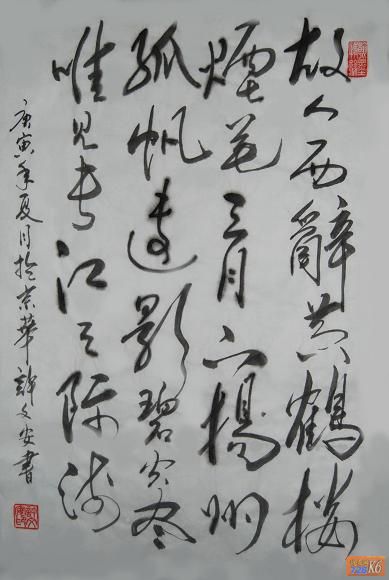 故人西辭黃鶴樓
煙花三月下揚州
孤帆遠影碧空尽
唯見長江天際流
庚寅年夏月於京華許文安書
K6